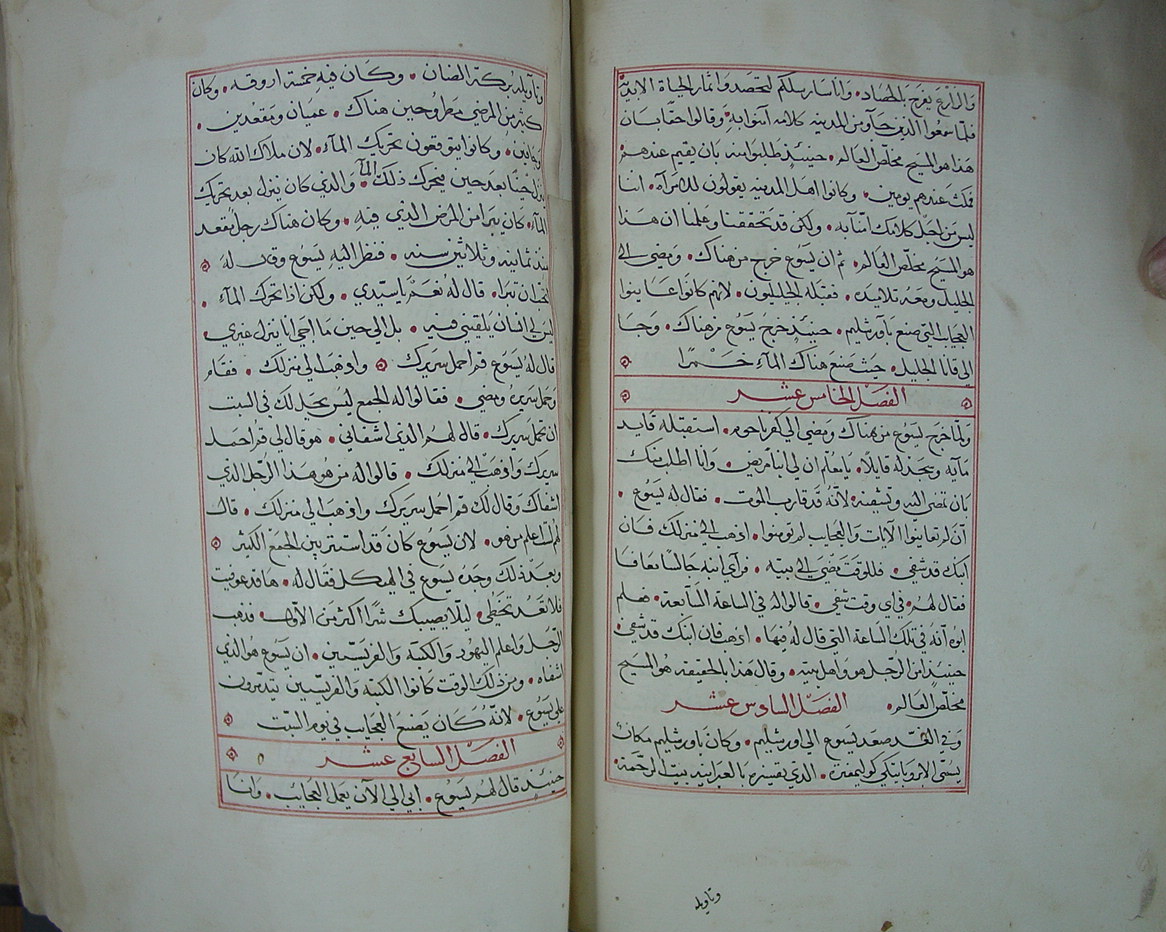 والزارع يفرح بالحصاد. وانا سارسلكم لتحصدوا ثمار الحياة الابدية
فلما سمعوا الذين جآو من المدينه كلامه آمنوا به. وقالوا حقا بان
هذا هو المسيح مخلص العالم. حينيذ طلبوا منه بان يقيم عندهم
فمكث عندهم يومين. وكانوا اهل المدينه يقولون للامرآه. اننا
ليس من اجل كلامك امنا به. ولكن قد تحققنا وعلمنا ان هذا
هو المسيح مخلص العالم. ثم ان يسوع خرج من هناك. ومضى الى
الجليل ومعه تلاميذه. فقبله الجليليون. لانهم كانوا عاينوا
العجايب التي صنع باورشليم. حينيذ خرج يسوع من هناك. وجا
الى قانا الجليل. حيث صنع هناك المآء خمرا
الفصل الخامس عشر
ولما خرج يسوع من هناك ومضى الى كفرناحوم. استقبله قايد
مآيه وسجد له قايلا. يا معلم ان لي ابنا مريض. وانا اطلب منك
بان تمضى اليه وتشفيه لانه قد قارب الموت. فقال له يسوع.
ان لم تعاينوا الآيات والعجايب لم تومنوا. اذهب الى منزلك فان
ابنك قد شفي. فللوقت مضى الى بيته. فرآى ابنه جالسا معافا
فقال لهم. في اي وقت شفي. قالوا له في الساعة السابعة. فعلم
ابوه انه في تلك الساعة التي قال له فيها. اذهب فان ابنك قد شفي.
حينيذ امن الرجل هو واهل بيته. وقال هذا بالحقيقه هو المسيح
مخلص العالم. الفصل السادس عشر
وفي الغد صعد يسوع الى اورشليم. وكان باورشليم مكان
يسمى الابروباتيكي كوليمفتره. الذي تفسيره بالعبرانيه بيت الرحمة.
وتاويله
وتاويله بركة الضان. وكان فيه خمسة اروقه. وكان
كثير من المرضى مطروحين هناك. عميان ومقعدين.
وجافين. وكانوا يتوقعون تحريك المآء. لان ملاك الله كان
ينزل حينا بعد حين فيحرك ذلك المآ. والذي كان ينزل بعد تحرك
المآء. كان يبرا من المرض الذي فيه. وكان هناك رجل مقعد
منذ ثمانيه وثلاثين سنه. فنظر اليه يسوع وقال له
اتحب ان تبرا. قال له نعم يا سيدي. ولكن اذا تحرك المآء.
ليس لي انسان يلقيني فيه. بل الى حين ما اجي انا ينزل غيري
قال له يسوع قم احمل سريرك واذهب الى منزلك. فقام
وحمل سريره ومضي. فقالوا له الجمع ليس يحل لك في السبت
ان تحمل سريرك. قال لهم الذي اشفاني. هو قال لي قم احمل
سريرك واذهب الى منزلك. قالوا له من هو هذا الرجل الذي
اشفاك وقال لك قم احمل سريرك واذهب الى منزلك. قال
لهم لست اعلم من هو. لان يسوع كان قد استتر بين الجمع الكثير
وبعد ذلك وجده يسوع في الهيكل فقال له. ها قد عوفيت
فلا تعد تخطي. ليلا يصيبك شرا اكثر من الآول. فذهب
الرجل واعلم اليهود والكهنة والفريسين. ان يسوع هو الذي
اشفاه. ومن ذلك الوقت كانوا الكهنه والفريسين يتدبرون
على يسوع. لانه كان يصنع العجايب في يوم السبت
الفصل السابع عشر
حينيذ قال لهم يسوع. ابي الى الآن يعمل العجايب. وانا